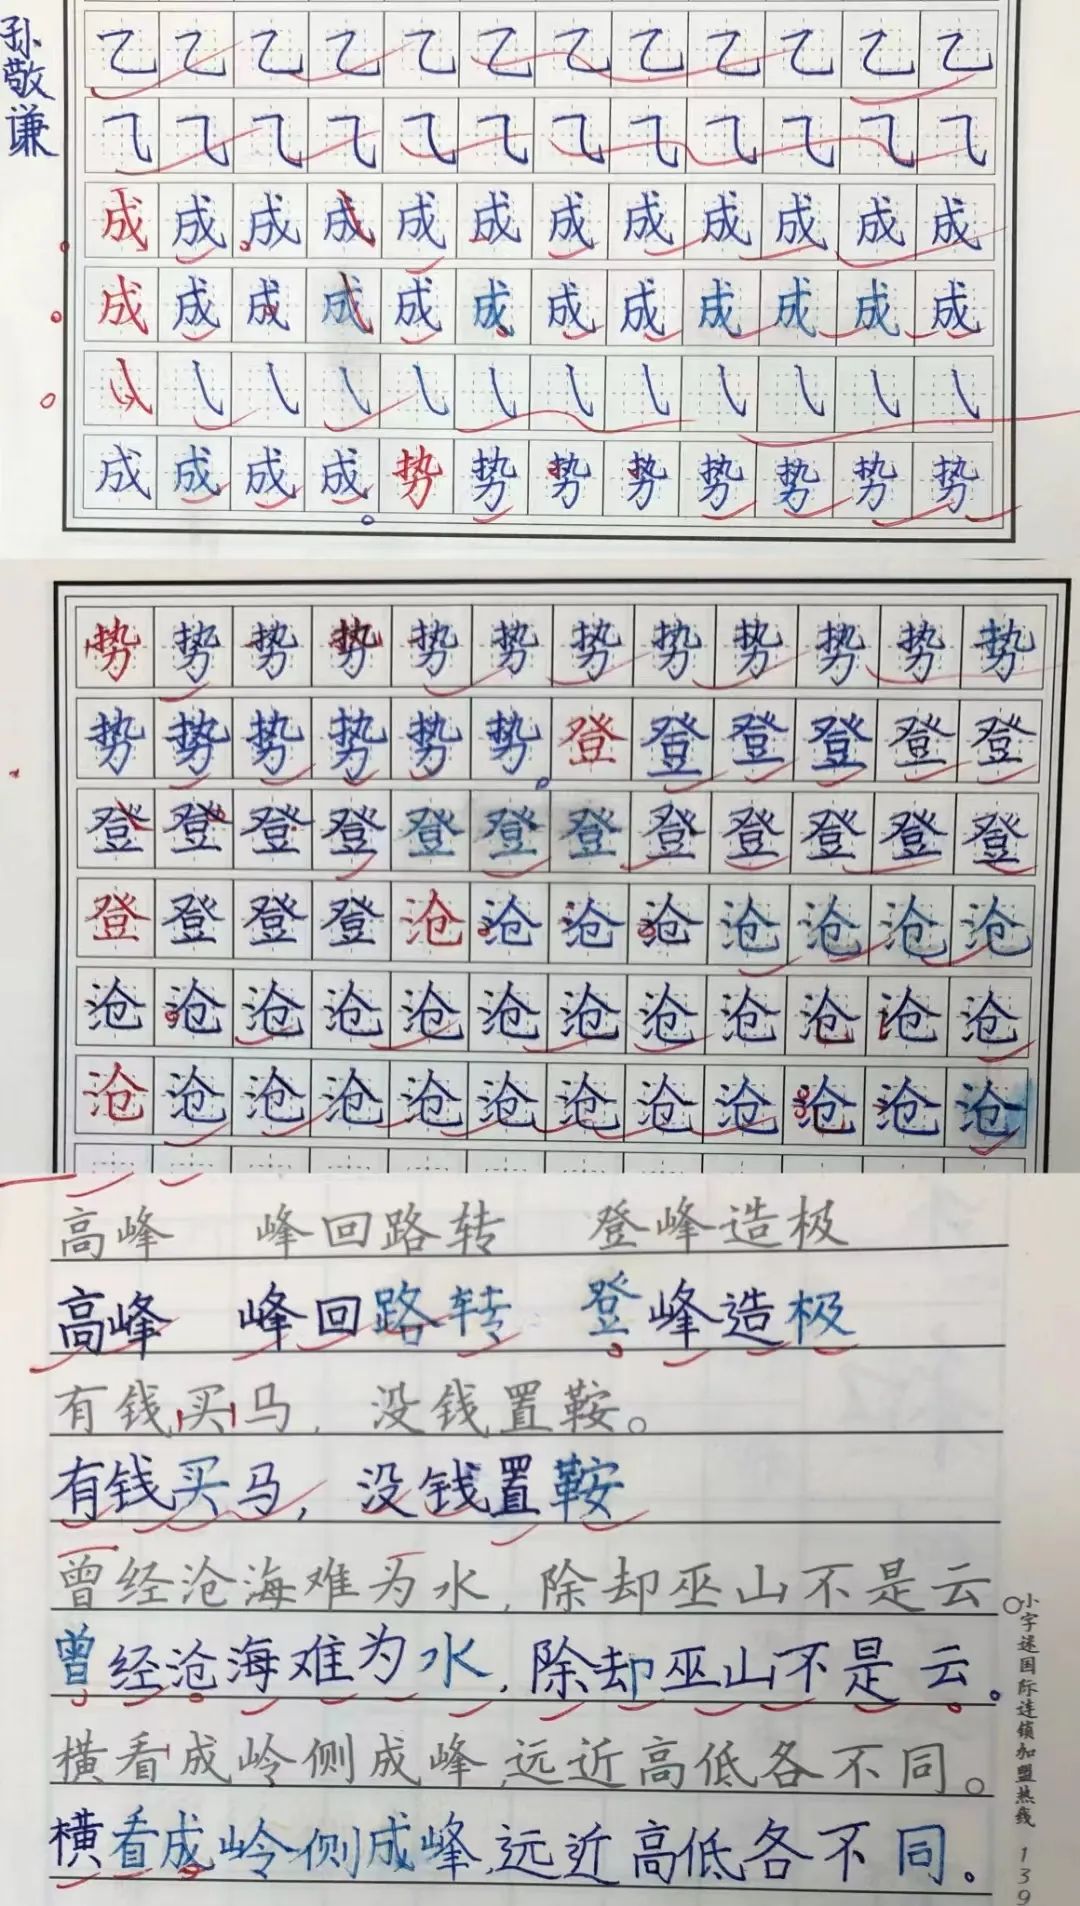 孙敬谦
乙乙乙乙乙乙乙乙乙乙乙乙
⺄⺄⺄⺄⺄⺄⺄⺄⺄⺄⺄⺄
成成成成成成成成成成成成
成成成成成成成成成成成成
成成成成势势势势势势势势
势势势势势势势势势势势势
势势势势势势登登登登登登
登登登登登登登登登登登登
登登登登沧沧沧沧沧沧沧沧
沧沧沧沧沧沧沧沧沧沧沧沧
沧沧沧沧沧沧沧沧沧沧沧沧
高峰 峰回路转 登峰造极
高峰 峰回路转 登峰造极
有钱买马,没钱置鞍。
有钱买马,没钱置鞍
曾经沧海难为水,除却巫山不是云。
曾经沧海难为水,除却巫山不是云。
横看成岭侧成峰,远近高低各不同。
横看成岭侧成峰,远近高低各不同。
小字迷国际连锁加盟热线 139